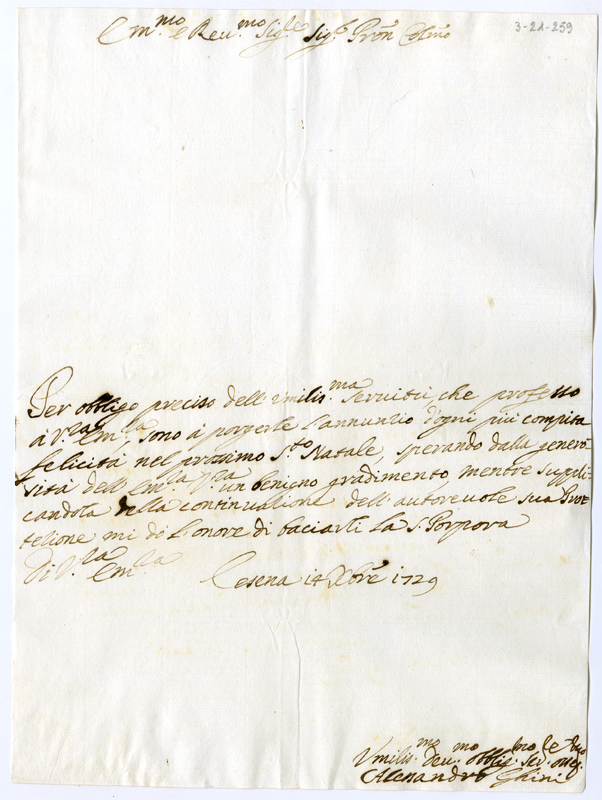 3-21-259
Em.mo e Reu.mo Sig.re Sig.r Pron Colmo
Per obligo preciso dell'Vmilis.ma seruitù, che professo
à V.ra Em.za sono à porgerle l'annunzio d'ogni più compita
felicità nel prossimo S.to Natale, sperando dalla genero-
sità dell'Em.za V.ra un benigno gradimento mentre suppli-
candola della continuatione dell'autoreuole sua Prot-
tetione mi dò l'onore di baciarli la S. Porpora
Di V.ra Em.za
Cesena 14 Xbre 1729
Vmilis.mo deu.mo obblig.
Alessandro Ghini